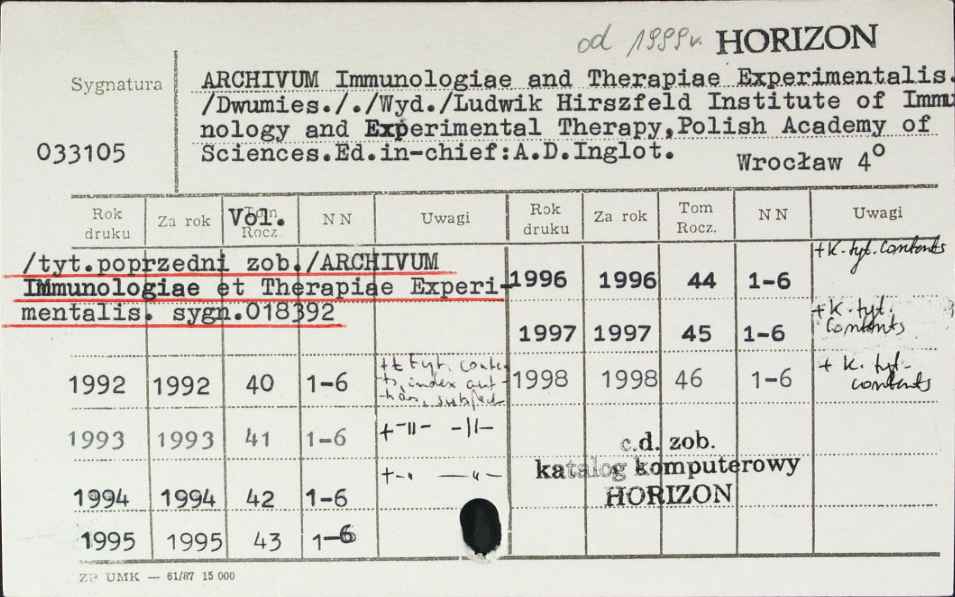 od 1999r. HORIZON
Sygnatura
033105
ARCHIVUM Immunologiae and Therapiae Experimentalis.
/Dwumies././Wyd./Ludwik Hirszfeld Institute of Immu
nology and Experimental Therapy,Polish Academy of
Sciences.Ed.in-chief:A.D.Inglot. Wrocław 4°
Rok druku Za rok Vol. Tom Rocz. NN Uwagi Rok druku Za rok Tom Rocz. NN Uwagi
/tyt.poprzedni zob./ARCHIVUM
Immunologiae et Therapiae Experi-
mentalis. sygn.018392
1996 1996 44 1-6 +k.tyt.contents
1997 1997 45 1-6 +k.tyt. contents
1992 1992 40 1-6 tyt. index subject
1998 1998 46 1-6 + k. tyt. contents
1993 1993 41 1-6 + -"- -"-
1994 1994 42 1-6 + -"- -"-
1995 1995 43 1-6
c.d. zob.
katalog komputerowy
HORIZON
ZP UMK — 61/87 15 000